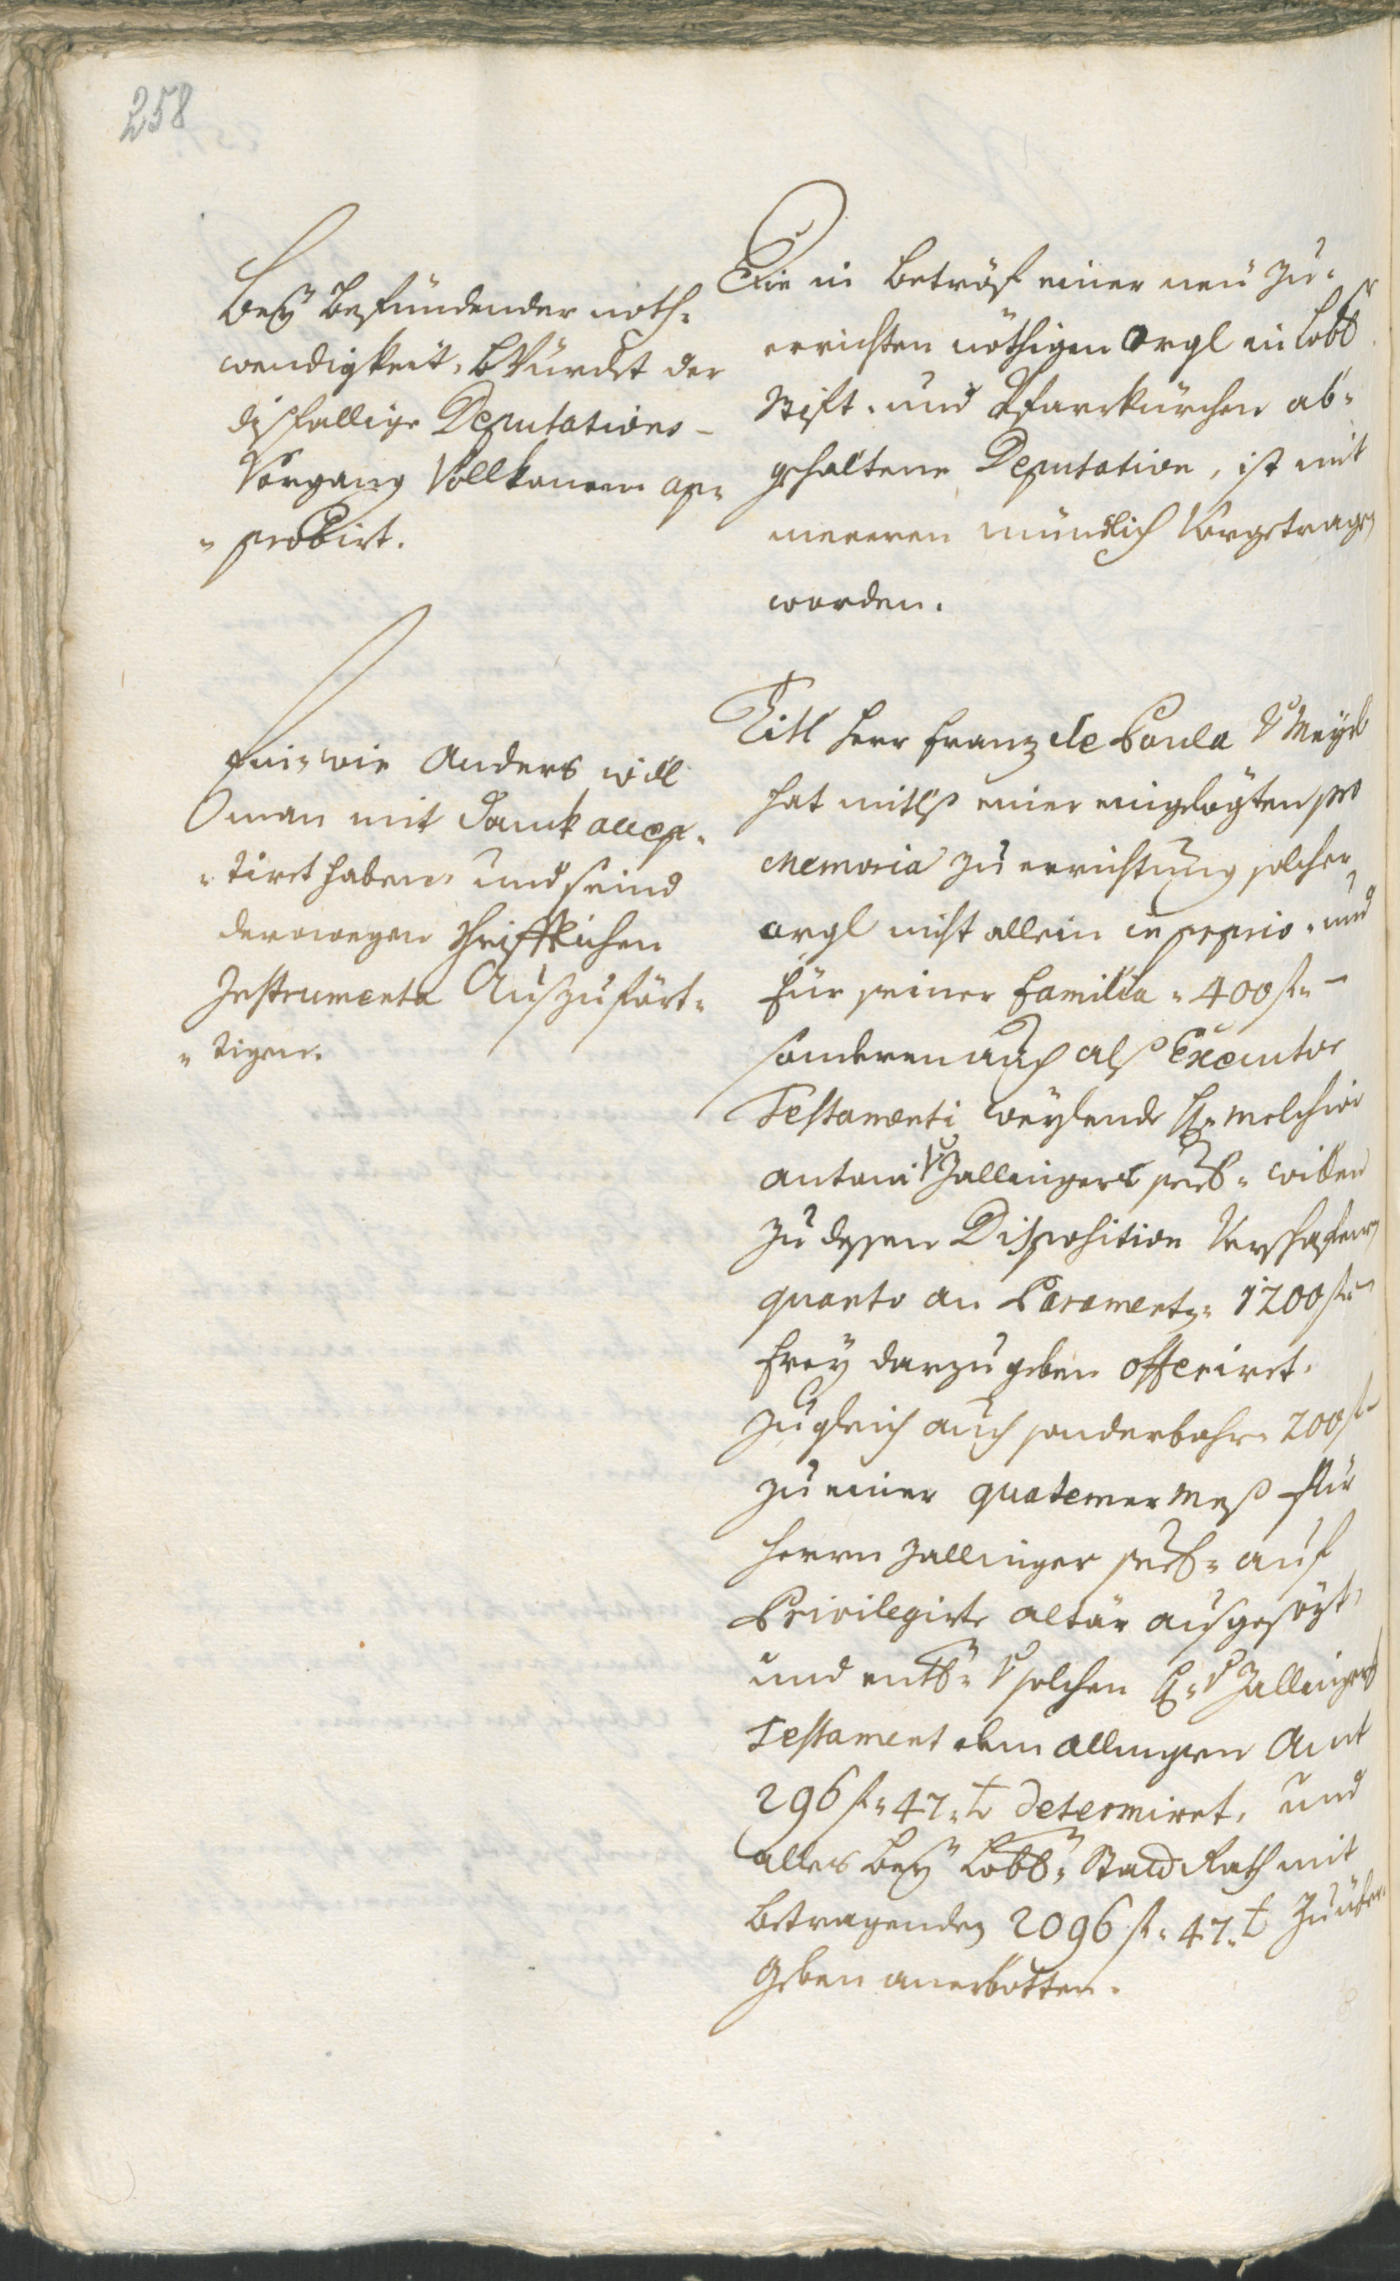 258
Bey Befündender noth-
wendigkeit, Würdt der
disfallige Deputations-
Vorgang Vollkomen ap-
probirt.
Ein- wie Anders will
man mit Danck accep-
tirt haben, und seind
derowegen schrifftlichen
Instrumenta Auszufört-
tigen.
Die in betröf einer neu zu-
errichten nöthigen Orgl in Lobl.
Stift- und Pfarrkürchen ab-
gehaltene Deputation, ist mit
mereren mündlich Vorgetragen
worden.
Titl Herr Franz de Paula V Mayrl
hat mitlß einer eingelögten pro
Memoria zu errichtung solcher
orgl nicht allein in proprio- und
für seiner Familia 400 f
sonderen auch alß Executor
Testamenti weylendt H. Melchior
Antoni V Zallingers seel. willen
zu dessen Disposition Verschafenen
quanto an Parament 1200 f
frey darzugeben offeriret,
zugleich auch sonderbahr 200 f
zu einer quatemer Meß für
Herrn Zallinger seel. auf
Privilegirte altär ausgesözt,
und entl. V solchen H. V Zallingers
Testament dem Amt
296 f 47 x determiret, und
alles bey Lobl. Stadt Rath mit
betragenden 2096 f 47 x zu über-
geben anerbotten.